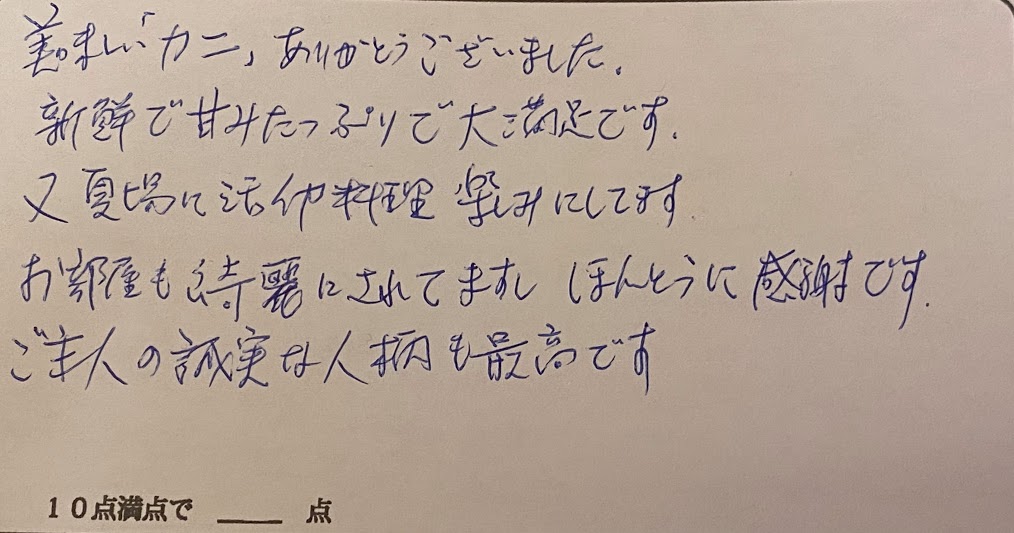 美味しい「カニ」ありがとうございました。
新鮮で甘みたっぷりで大満足です。
又夏場に活イカ料理楽しみにしてます。
お部屋も綺麗にされてますし ほんとうに感謝です。
ご主人の誠実な人柄も最高です
10点満点で ____ 点